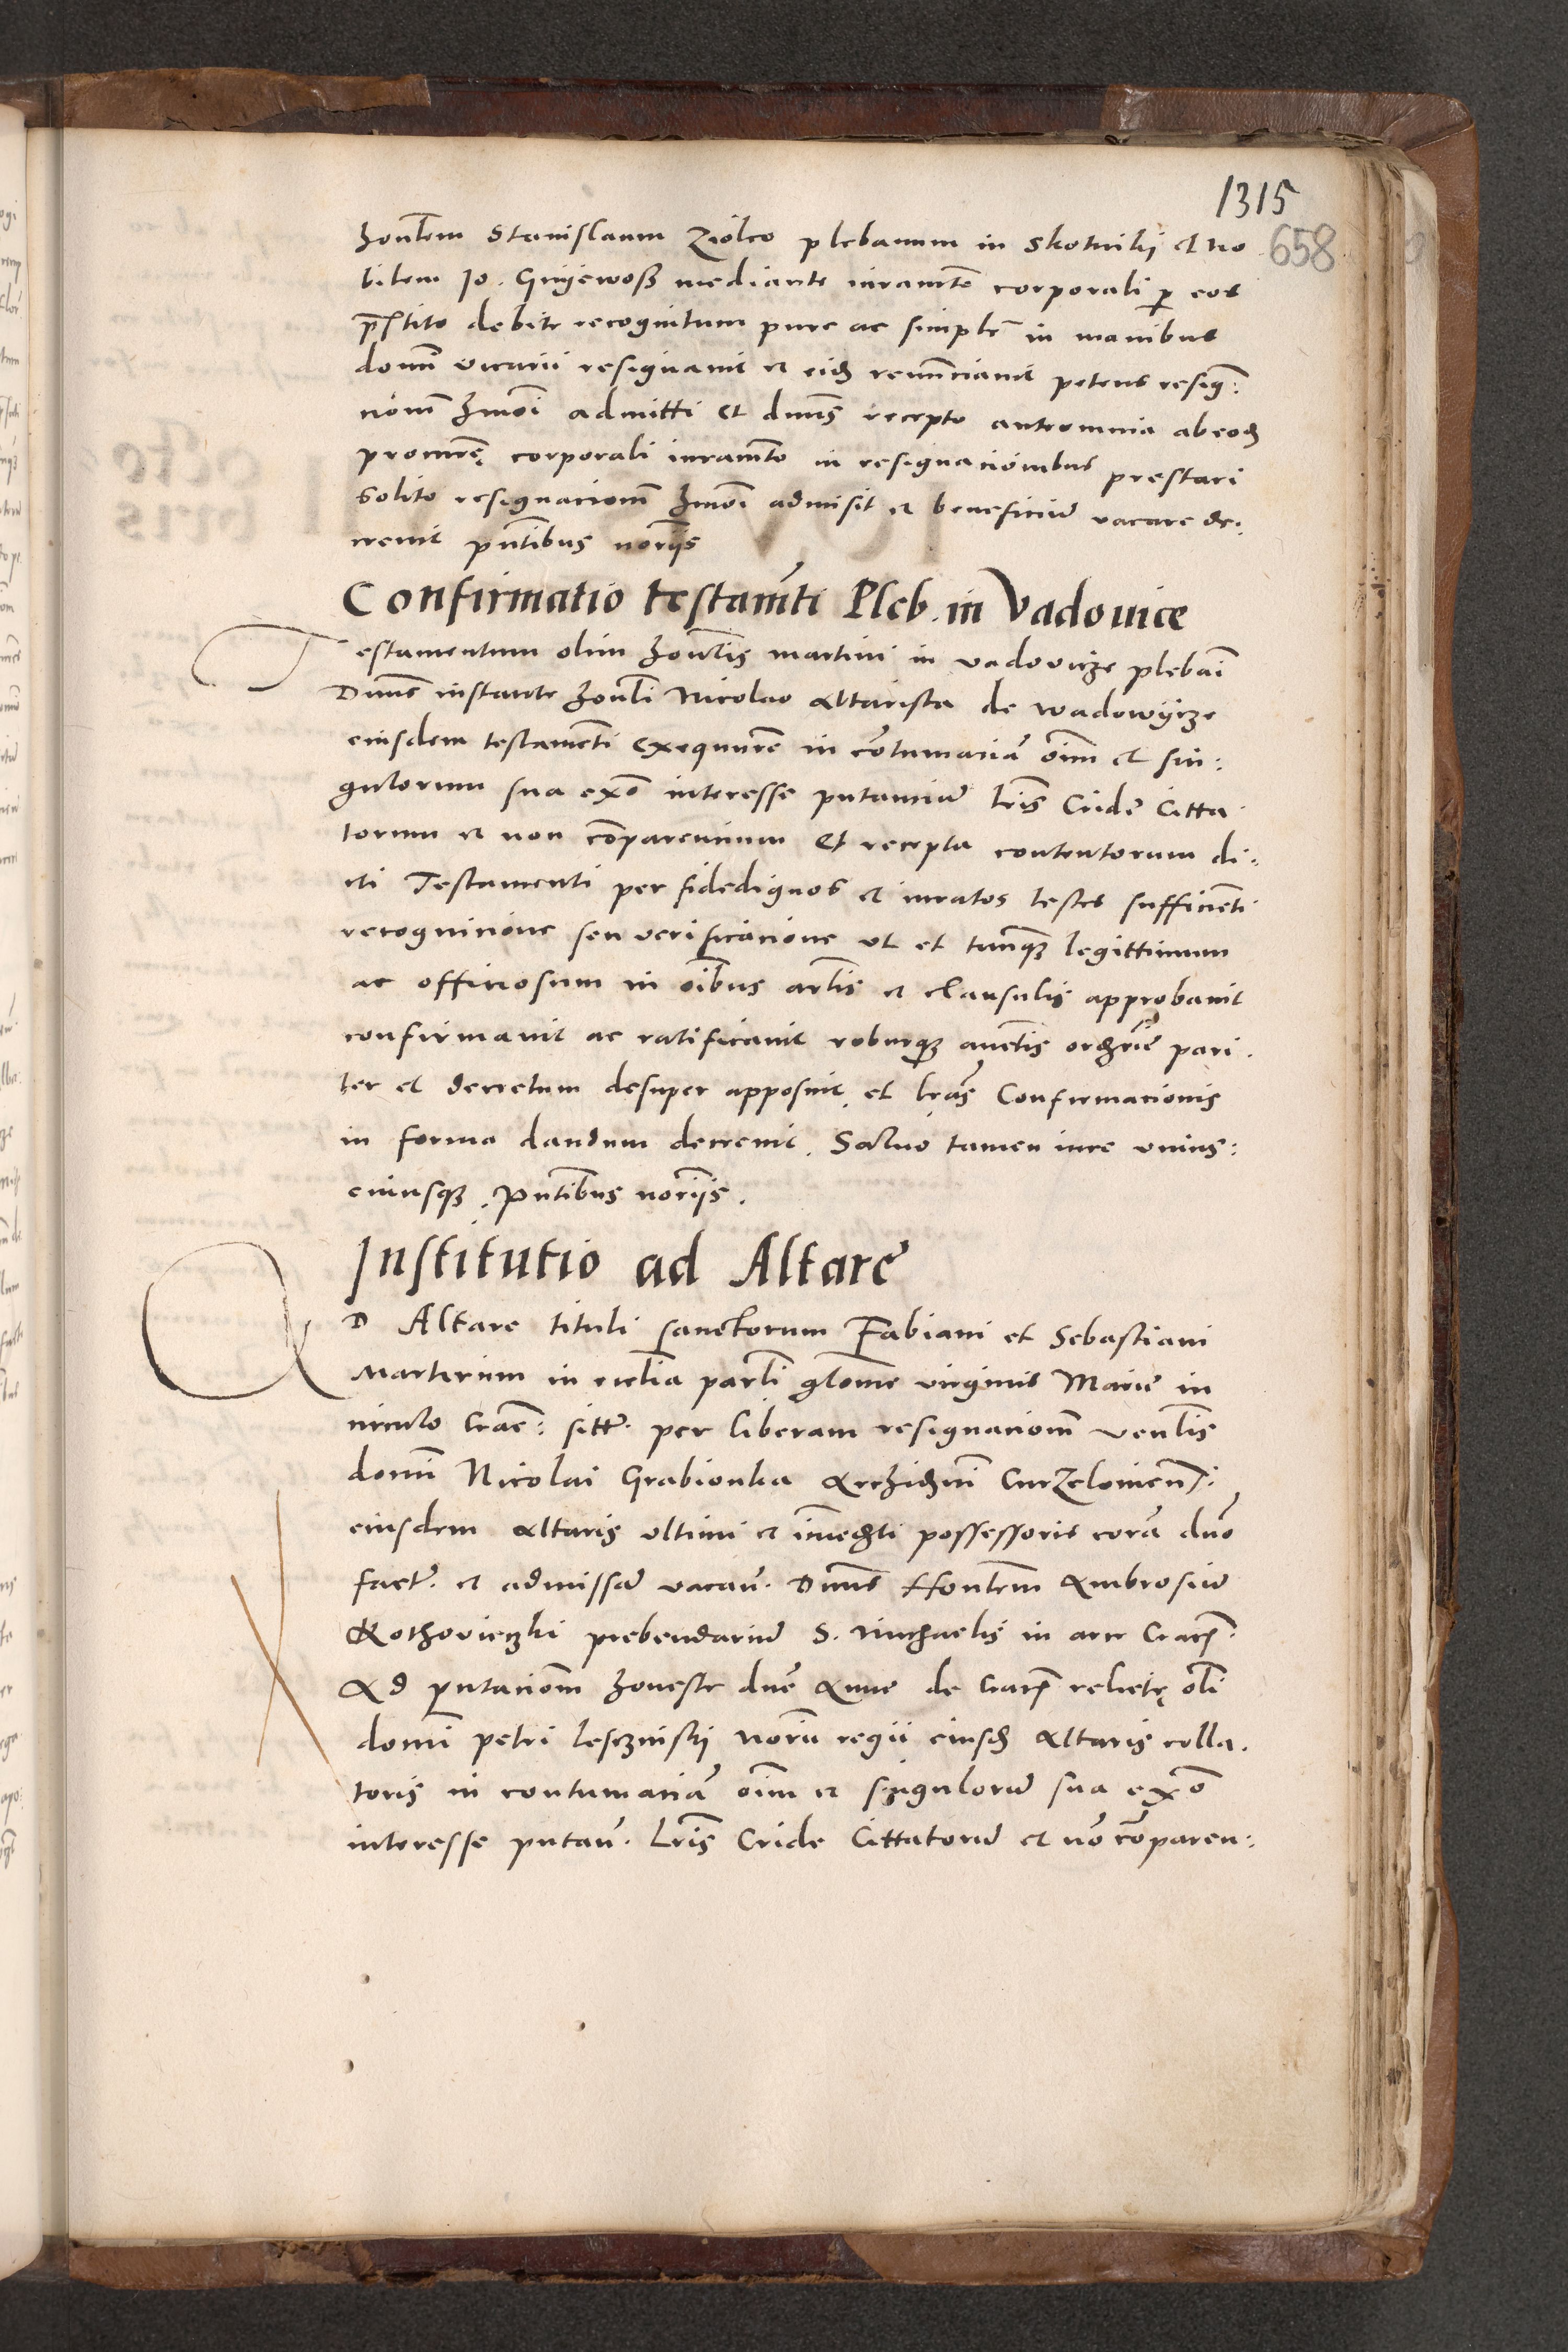 1315
658
honlem Stanislaum Ziolco plebanum in Skotniky et no
bilem Jo. Gnyewosß mediante iuramto corporali p eos
prestito debite recognitum pure ac simplr in manibus
domi vicarii resignavit et eid renunciavit petens resig:
nom hmoi admitti Et dnus recepto anteomnia ab eod
procure corporali iuramto in resignacionibus prestari
solito resignacionem hmoi admisit et beneficiu vacare de:
crevit pntibus noriis
Confirmatio testamti Pleb. in Vadovice
Testamentum olim honlis martini in vadovicze plebai
Dnus instante honli Nicolao Altarista de wadowycze
eiusdem testamenti exequutore in contumaciam oim et sin:
gulorum sua exno interesse putanciu lris Cride Citta
torum et non comparencium Et recepta contentorum di:
cti Testamenti per fidedignos et iuratos testes sufficienti
recognicione seu verificacione ut et tanqz legittimum
ac officiosum in oibus artlis et clausulis approbavit
confirmavit ac ratificavit roburqz auctis ordrie pari.
ter et decretum desuper apposuit et lras Confirmacionis
in forma dandum decrevit. Salvo tamen iure unius:
cuiusqz. Pntibus noriis.
Institutio ad Altare
AD Altare tituli sanctorum Fabiani et Sebastiani
Martirum in ecclia parli gloriose virginis Marie in
circulo Crac: sittu. per liberam resignacionem venlis
domi Nicolai Grabionka Archidni Curzelovien.
eiusdem Altaris ultimi et immediti possessoris coram dno
factu. et admissa vacan. Dnus Honlem Ambrosiu
Rothoviczki prebendariu S. Michaelis in arce Crac.
Ad pntacionem honeste dne Anne de Crac relicte oli
domi petri lesczinsky norii regii eiusd Altaris colla.
toris in contumaciam oim et singuloru sua exno
interesse putan. lris Cride Cittatoru et no comparen: